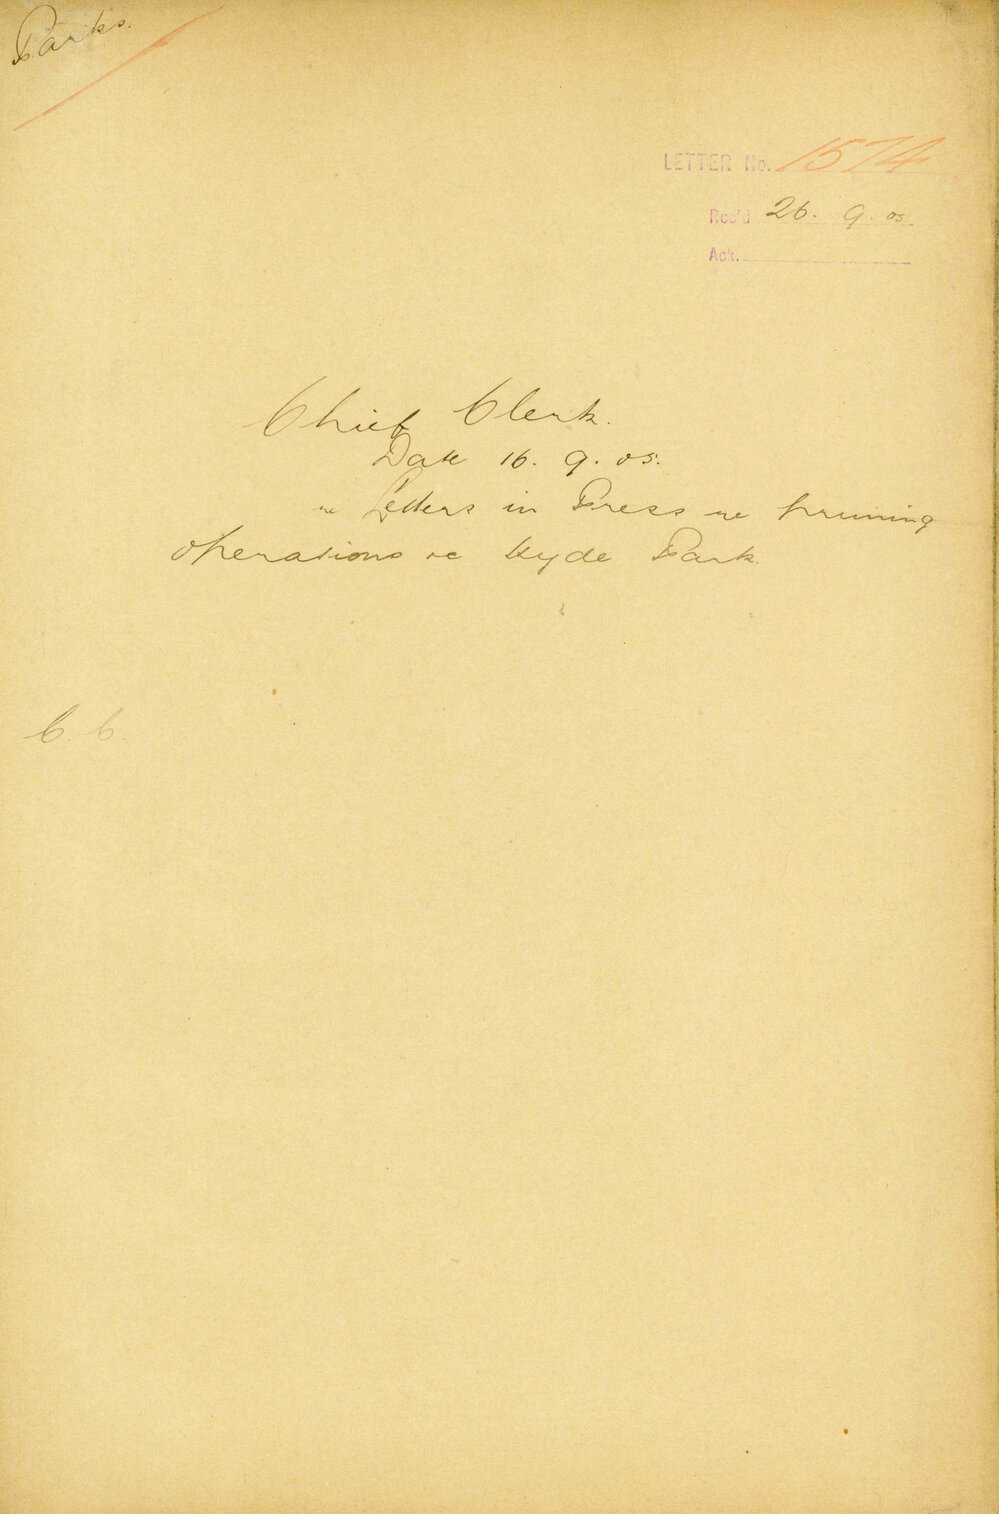 Parks.
LETTER No. 1574
Rec'd 26. 9. 05.
Ack.
Chief Clerk.
Date 16. 9. 05.
re Letters in Press re pruning
operations re Hyde Park.
C. C.